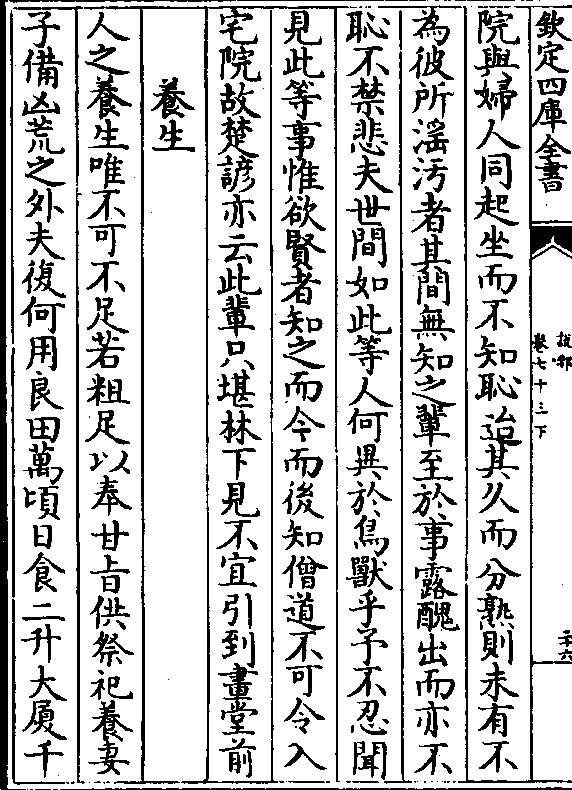 欽定四庫全書
說郛
卷七十三下
三六
院與婦人同起坐而不知恥迨其久而分熟則未有不
為彼所淫汚者其間無知之輩至於事露醜出而亦不
恥不禁悲夫世間如此等人何異於鳥獸乎予不忍聞
見此等事惟欲賢者知之而今而後知僧道不可令入
宅院故楚諺亦云此輩只堪林下見不宜引到畫堂前
養生
人之養生唯不可不足若粗足以奉甘旨供祭祀養妻
子備凶荒之外夫復何用良田萬頃日食二升大厦千